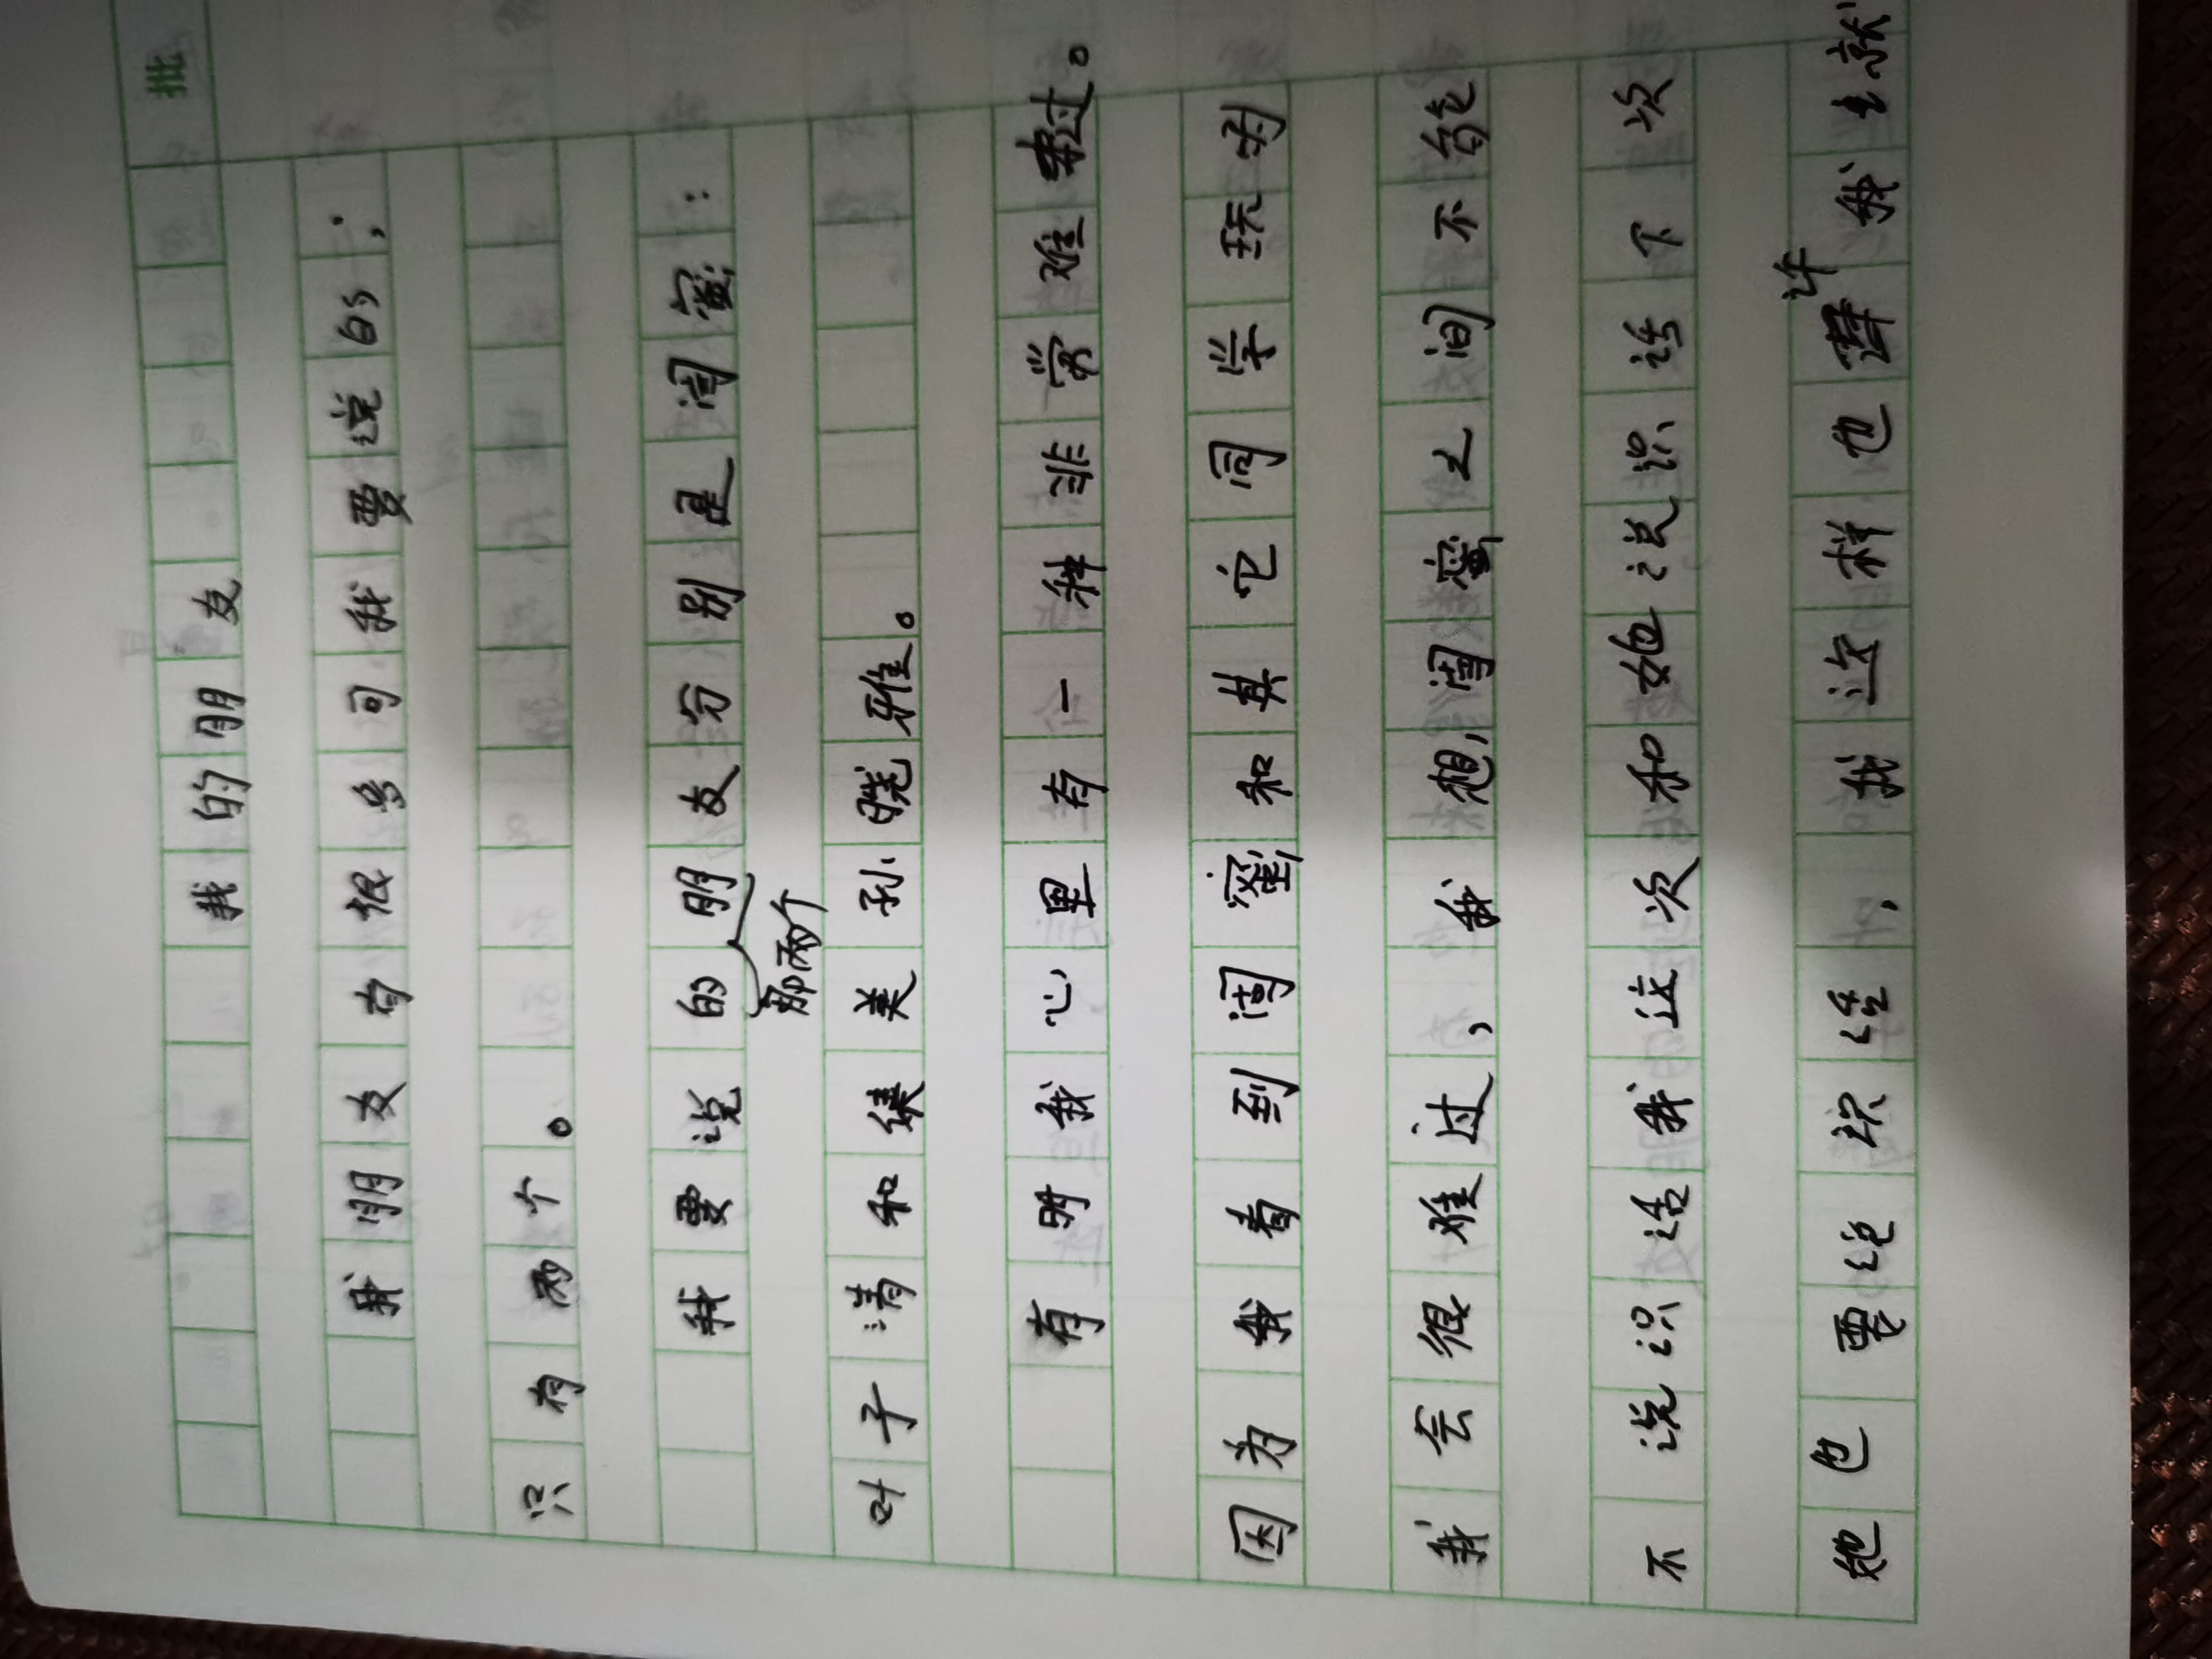 批
我的朋友
我朋友有很多可我要说的;
只有两个。
我要说的朋友分别是闺蜜:
那两个
叶子清和美孙晓雅。
有时我心里有一种非常难过。
因为我看到闺蜜和其它同学玩
我会很难过,我想,闺蜜之间不能
不说识话我这次和她说识话下次
她也要,我这样也许我就